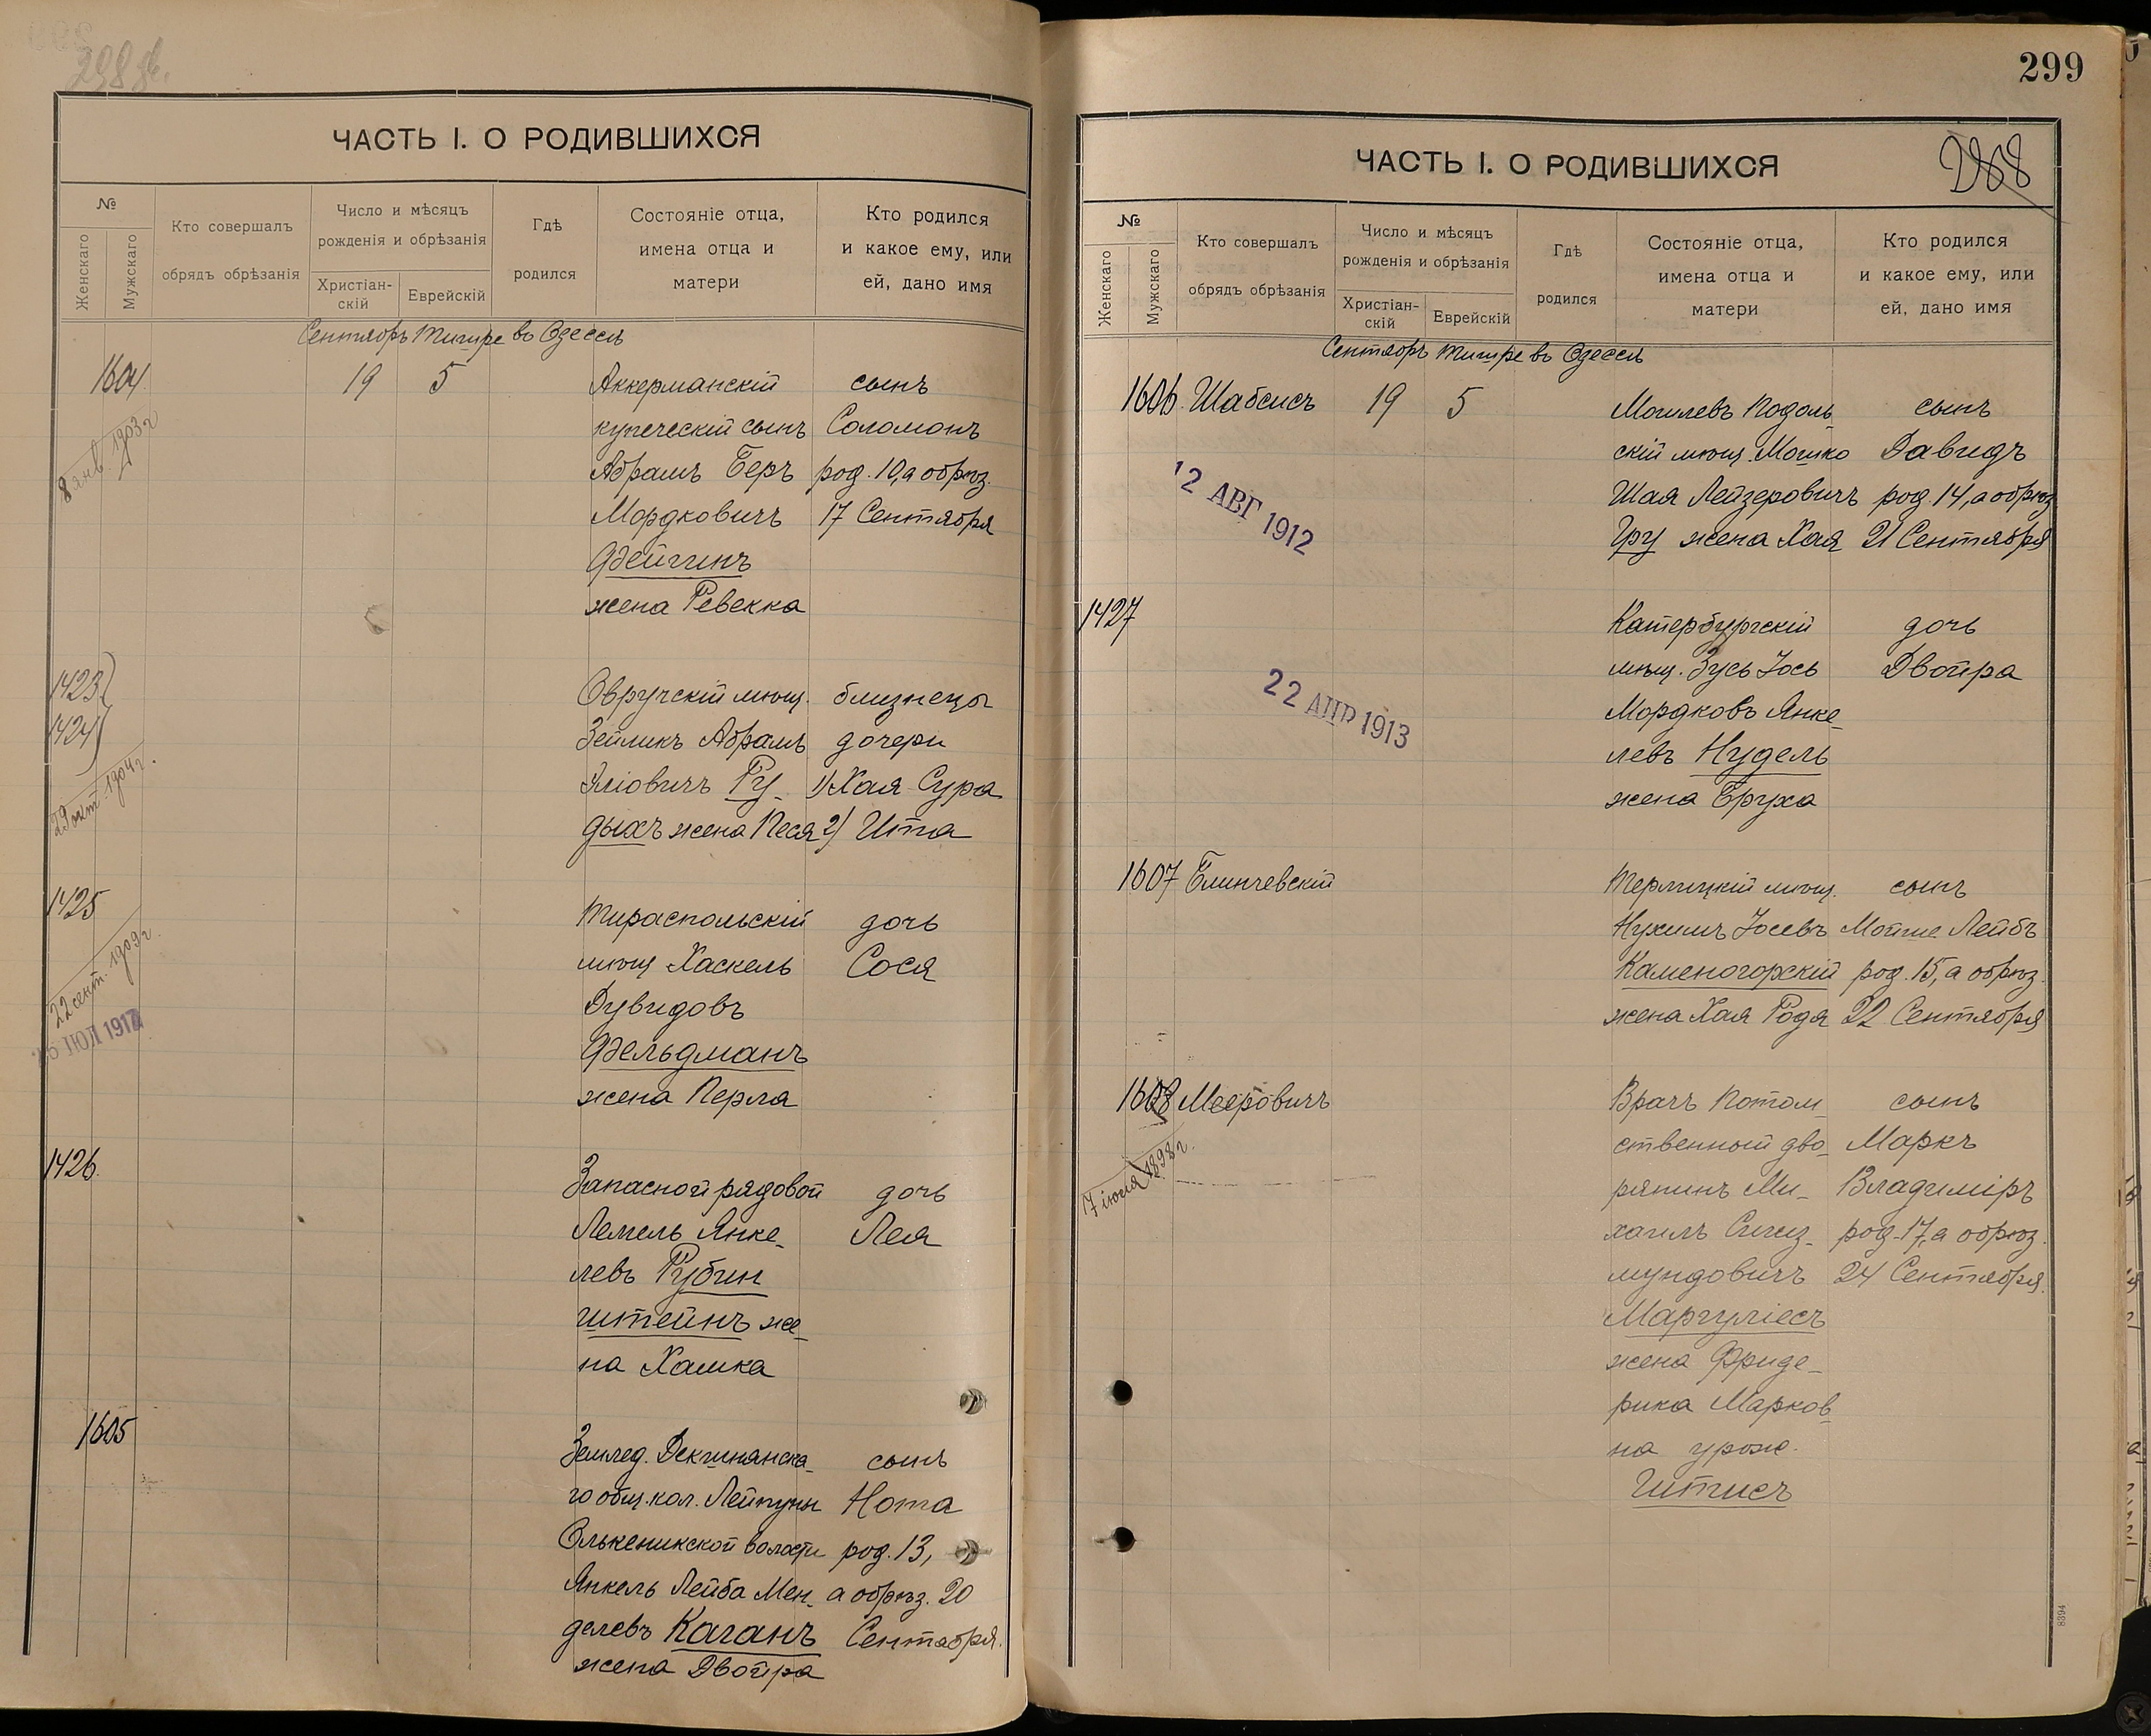 298 об.
ЧАСТЬ I. О РОДИВШИХСЯ
№
Женскаго
Мужскаго
Кто совершалъ
обрядъ обрѣзанія
Число и мѣсяцъ
рожденія и обрѣзанія
Христіан-
скій
Еврейскій
Гдѣ
родился
Состояніе отца,
имена отца и
матери
Кто родился
и какое ему, или
ей, дано имя
Сентябрь Тишре въ Одессѣ
1604 19 5 Аккерманскій сынъ
купеческій сынъ Соломонъ
8 янв. 1903 г
Абрамъ Беръ род. 10, а обрѣз.
Мордковичъ 17 Сентября
Фейгинъ
жена Ревекка
1423 Овручскій мѣщ. близнецы
1424 Зейликъ Абрамъ дочери
29 окт 1904 г.
Эліовичъ Ру- 1) Хая Сура
дыхъ жена Песя 2) Ита
1425 Тираспольскій дочь
22 сент. 1909 г.
мѣщ Хаскель Сося
Дувидовъ
ИЮЛ 1917
Фельдманъ
жена Перла
1426. Запасной рядовой дочь
Лемель Янке- Лея
левъ Рубин
штейнъ же-
на Хамка
1605 Землед. Декшнянска- сынъ
го общ. кол. Лейпуны Нота
Олькеникской волости род. 13,
Янкель Лейба Мен- а обрѣз. 20
делевъ Каганъ Сентября.
жена Двойра
299
ЧАСТЬ I. О РОДИВШИХСЯ
288
№
Женскаго
Мужскаго
Кто совершалъ
обрядъ обрѣзанія
Число и мѣсяцъ
рожденія и обрѣзанія
Христіан-
скій
Еврейскій
Гдѣ
родился
Состояніе отца,
имена отца и
матери
Кто родился
и какое ему, или
ей, дано имя
Сентябрь Тишре въ Одессѣ
1606. Шабсисъ 19 5 Могилевъ Подоль- сынъ
скій мѣщ. Мошко Давидъ
12 АВГ 1912
Шая Лейзеровичъ род. 14, а обрѣз
Гру жена Хая 21 Сентября
1427 Катербургскій дочь
мѣщ. Зусь Іось Двойра
22 АПР 1913
Мордковъ Янке-
левъ Нудель
жена Бруха
1607 Блинчевскій Терлицкій мѣщ. сынъ
Нухимъ Іосевъ Мойше Лейбъ
Каменогорскій род. 15, а обрѣз.
жена Хая Родя 22 Сентября
1608 Мееровичъ Врачъ Потом- сынъ
17 іюля 1898 г.
ственный дво- Маркъ
рянинъ Ми- Владиміръ
хаилъ Сигиз- род. 17, а обрѣз.
мундовичъ 24 Сентября.
Маргуліесъ
жена Фриде-
рика Марков-
на урож.
Читисъ
8394